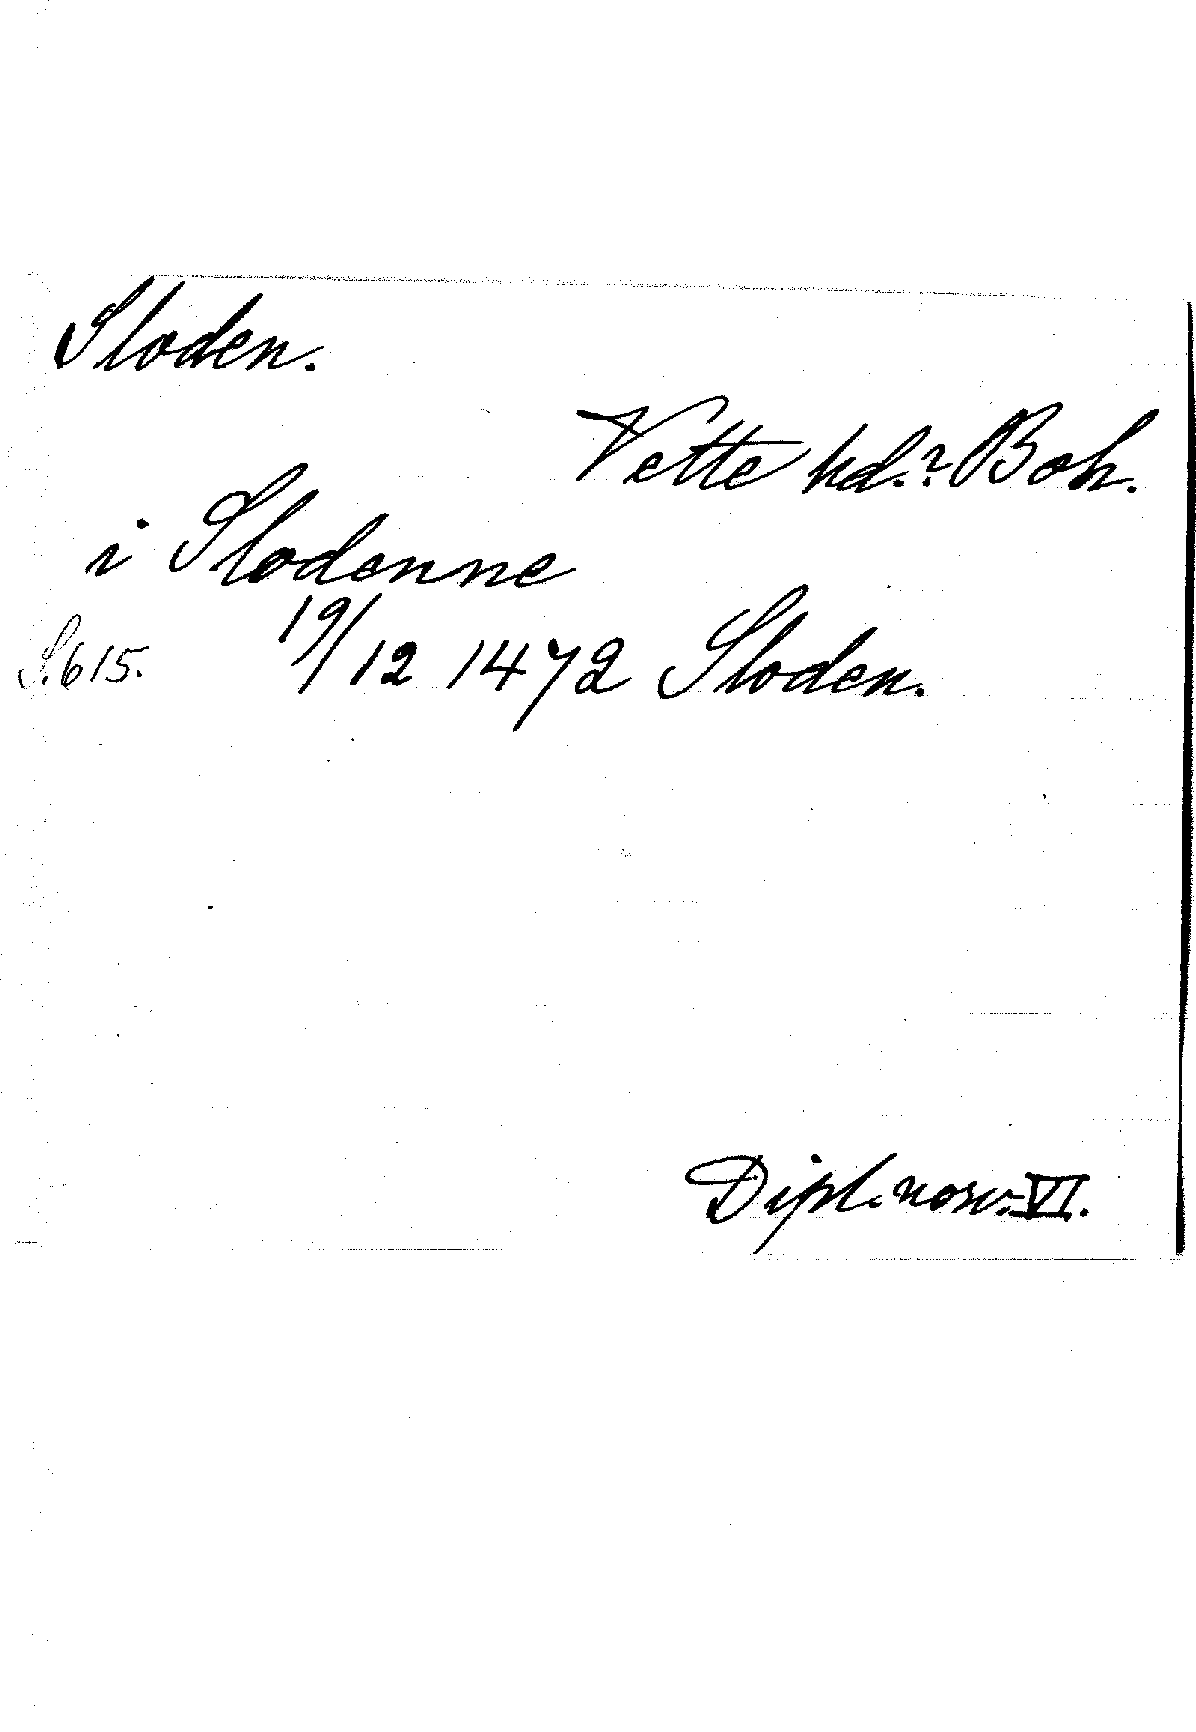 Sloden.
Vette hd.? Boh.
i Slodenne
S. 615. 19/12 1472 Sloden.
Dipl. norv. VI.